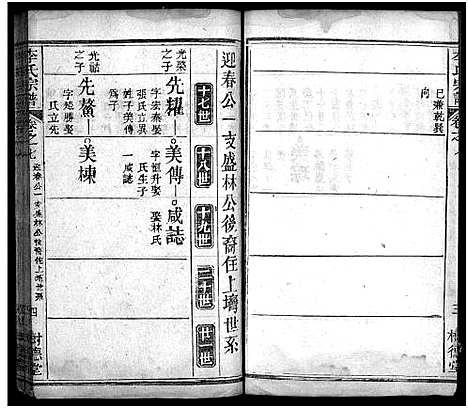 巳兼乾巽
向
迎春公一支盛林公後裔住上壪世系
十七世
十八世
十九世
二十世
廿一世
光榮
之子
先耀
美傳
咸誌
字宏泰娶
張氏立異
姓子美傳
字恒升娶
氏生子
一咸誌
娶林氏
光詔
之子
先鰲
美棟
字矩勝娶
氏立先
李氏宗譜
卷之七
迎春公一支盛林公後裔住上壪世系
四
樹德堂
三
樹德堂